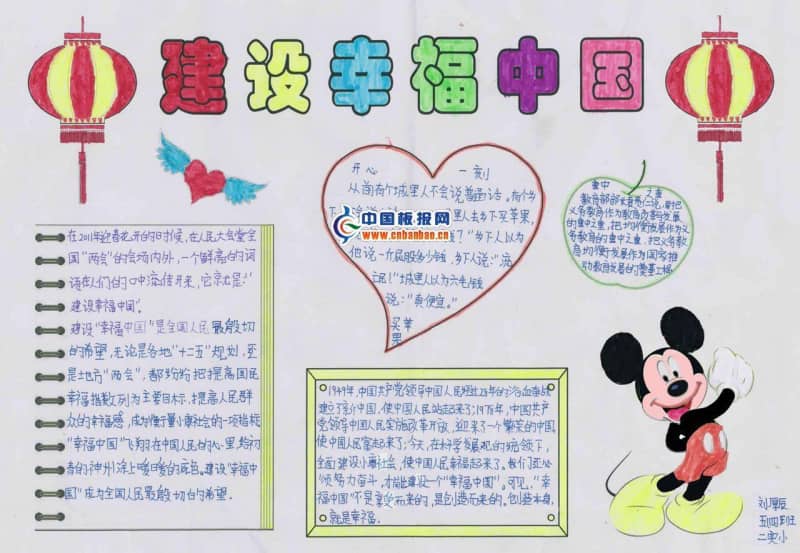 建设幸福中国
开心 一刻
从前有个城里人不会说普通话。有个乡
中国板报网
www.cnbanbao.cn
他说一斤屁股多少钱,乡人说:"流
氓!"城里人以为六毛钱
说:"真便宜。"
买苹
果
重中 之重
教育部部长袁贵仁说,要把
义务教育作为教育改革发展
的重中之重,把均衡发展作为义
务教育的重中之重,把义务教
育均衡发展作为国家推
动教育发展的
在2011年迎春花开的日时候,在人民大会堂全
国"两会"的会场内外,一个鲜亮的词
语在人们的口中流传开来,它就是:"
建设幸福中国"。
建设"幸福中国"是全国人民最殷切
的希望,无论是各地"十二五"规划,还
是地方"两会",都纷纷把提高国民
幸福指数列为主要目标,提高人民群
众的幸福感,成为衡量小康社会的一项指标
"幸福中国"飞翔在中国人的心里,给初
春的神州涂上暖暖的底色。建设"幸福中
国"成为全国人民最殷切的希望。
1949年,中国共产党领导中国人民经过28年的浴血奋战
建立了新中国,使中国人民站起来了;1978年,中国共产
党领导中国人民实施改革开放,迎来了一个繁荣的中国,
使中国人民富起来了;今天,在科学发展观的统领下,
全面建设小康社会,使中国人民幸福起来了。我们还必
须努力奋斗,才能建设一个"幸福中国"。可见,"幸
福中国"不是等来的,是创造而来的。创造本身,
就是幸福。
刘厚辰
五四班
二实小